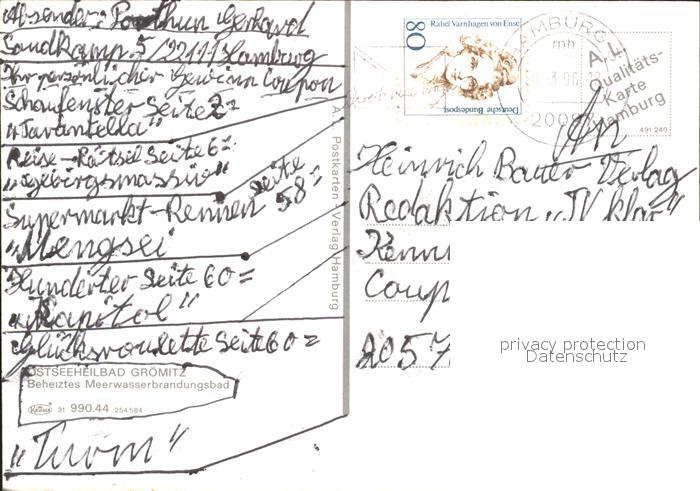 Absender: Gerhard
Sandkamp 5 / 22111 Hamburg
Ihr persönlicher Gewinn Coupon
Schaufenster Seite 2=
„Tarantella"
Reise-Rätsel Seite 6=
„Gebirgsmassiv"
Supermarkt-Rennen Seite 58=
„Mengsei
Hunderter Seite 60=
„Kapitol"
Glücksroulette Seite 60=
OSTSEEHEILBAD GRÖMITZ
Beheiztes Meerwasserbrandungsbad
31 990.44 254584
„Turm"
A. L. Postkarten-Verlag Hamburg
Rahel Varnhagen von Ense
80
Deutsche Bundespost
HAMBURG
mh
A. L.
Qualitäts-
Karte
Hamburg
491 240
An
Heinrich Bauer Verlag
Redaktion „TV klar"
Kenn
Coup
2057
privacy protection
Datenschutz